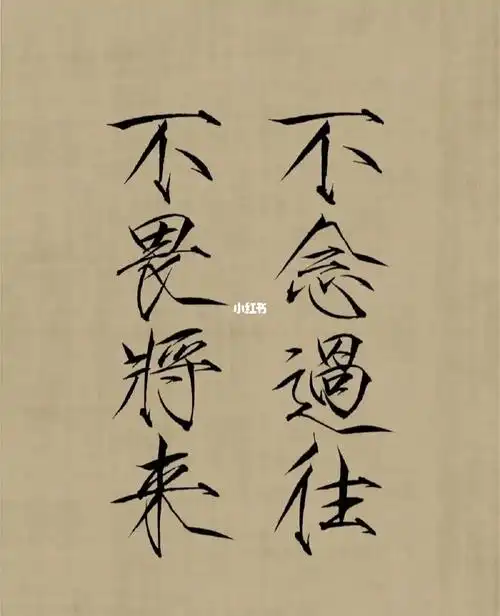 不念過往
不畏將来
小红书